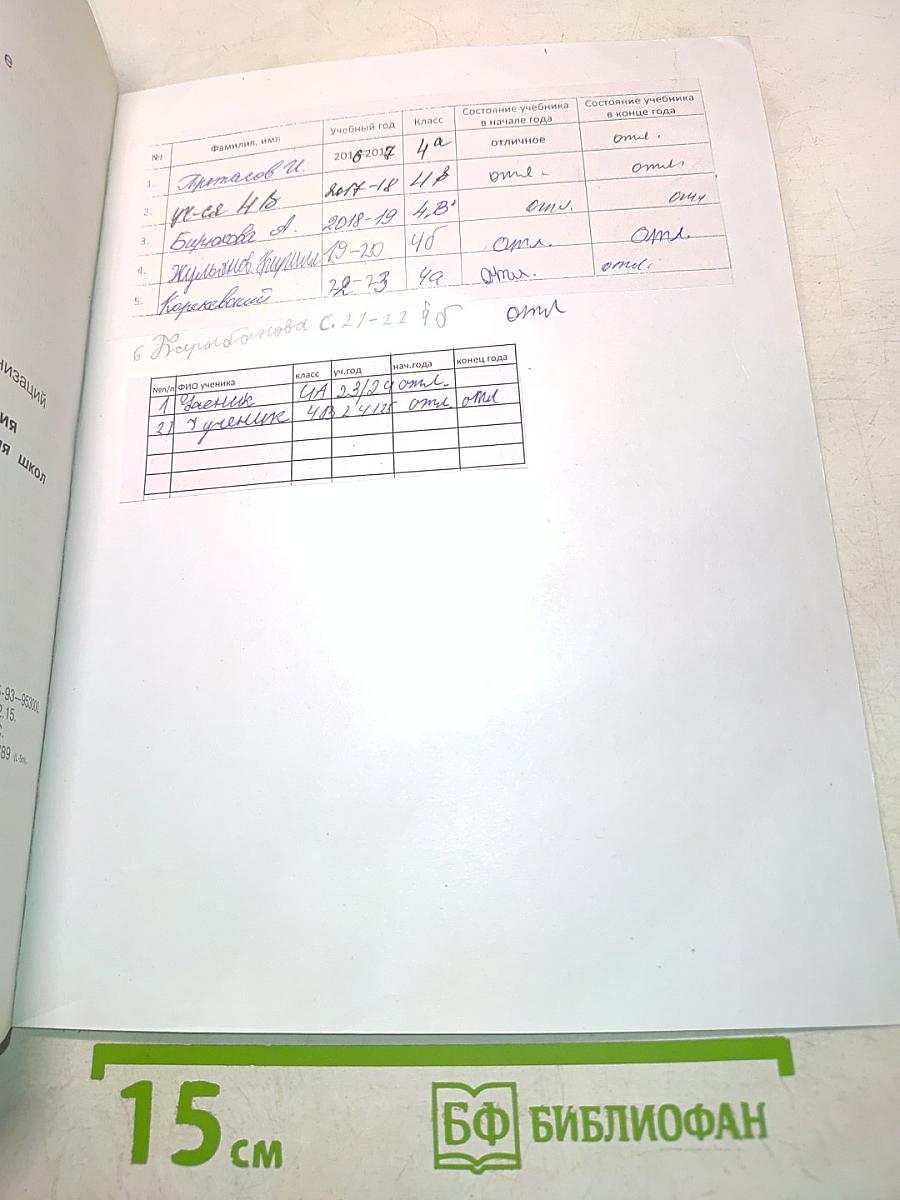 е
низаций
ия
ия школ
5-93—953000.
2.15.
С.
789
№ Фамилия, имя Учебный год Класс Состояние учебника в начале года Состояние учебника в конце года
1. Протасов И. 2016-2017 4а отличное отл.
2. уч-ся 4В 2017-18 4В отл. отл.
3. Бирюкова А. 2018-19 4 "В" отл. отл
4. Кирилл 19-20 4б отл. отл.
5. 22-23 4а отл. отл.
6 С. 21-22 4б отл
№п/п ФИО ученика класс уч.год нач.года конец года
1 Ученик 4А 23/24 отл.
2 ученик 4В 24/25 отл. отл
15 см
БФ БИБЛИОФАН